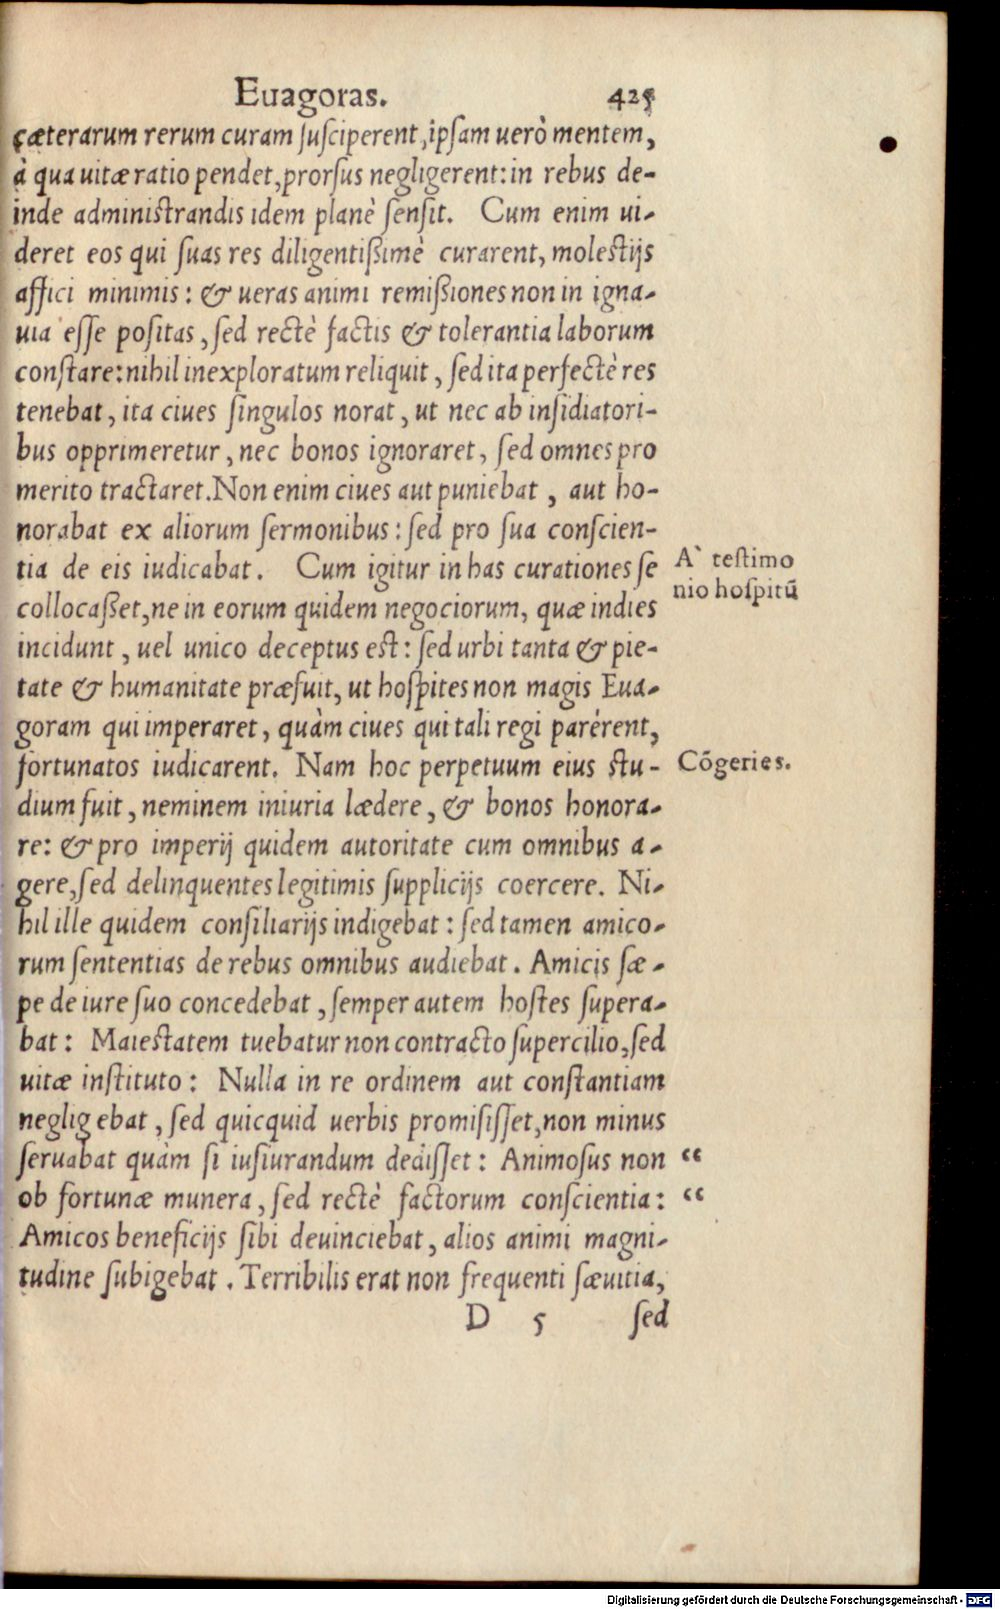 Euagoras. 425
cæterarum rerum curam ſuſciperent, ipſam uerò mentem,
à qua uitæ ratio pendet, prorſus negligerent: in rebus de-
inde adminiſtrandis idem planè ſenſit. Cum enim ui-
deret eos qui ſuas res diligentißimè curarent, moleſtijs
affici minimis: & ueras animi remißiones non in igna-
uia eſſe poſitas, ſed rectè factis & tolerantia laborum
conſtare: nihil inexploratum reliquit, ſed ita perfectè res
tenebat, ita ciues ſingulos norat, ut nec ab inſidiatori-
bus opprimeretur, nec bonos ignoraret, ſed omnes pro
merito tractaret. Non enim ciues aut puniebat, aut ho-
norabat ex aliorum ſermonibus: ſed pro ſua conſcien-
tia de eis iudicabat. Cum igitur in has curationes ſe
A` teſtimo
nio hoſpitū
collocaßet, ne in eorum quidem negociorum, quæ indies
incidunt, uel unico deceptus eſt: ſed urbi tanta & pie-
tate & humanitate præfuit, ut hoſpites non magis Eua-
goram qui imperaret, quàm ciues qui tali regi parèrent,
fortunatos iudicarent. Nam hoc perpetuum eius ſtu-
Cōgeries.
dium fuit, neminem iniuria lædere, & bonos honora-
re: & pro imperij quidem autoritate cum omnibus a-
gere, ſed delinquentes legitimis ſupplicijs coercere. Ni-
hil ille quidem conſiliarijs indigebat: ſed tamen amico-
rum ſententias de rebus omnibus audiebat. Amicis ſæ-
pe de iure ſuo concedebat, ſemper autem hoſtes ſupera-
bat: Maieſtatem tuebatur non contracto ſupercilio, ſed
uitæ inſtituto: Nulla in re ordinem aut conſtantiam
neglig ebat, ſed quicquid uerbis promiſiſſet, non minus
ſeruabat quàm ſi iuſiurandum dediſſet: Animoſus non “
ob fortunæ munera, ſed rectè factorum conſcientia: “
Amicos beneficijs ſibi deuinciebat, alios animi magni-
tudine ſubigebat. Terribilis erat non frequenti ſæuitia,
D 5 ſed
Digitalisierung gefördert durch die Deutsche Forschungsgemeinschaft - DFG